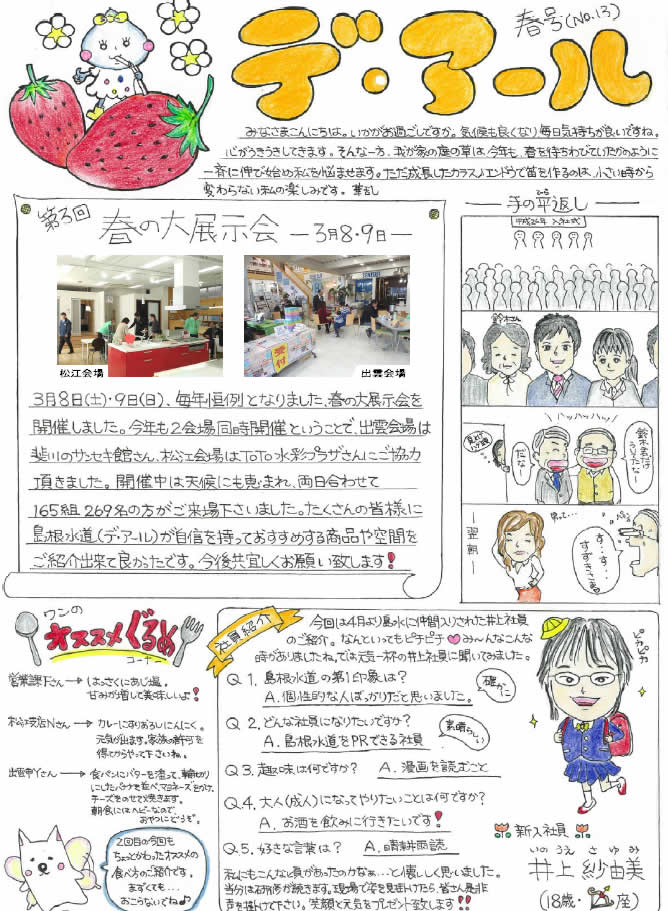 春号(No.13)
デ・アール
みなさまこんにちは。いかがお過ごしですか。気候も良くなり毎日気持ちが良いですね。
心がうきうきしてきます。そんな一方、我が家の庭の草は、今年も、春を待ちわびていたかのように
一斉に伸び始め私を悩ませます。ただ成長したカラスノエンドウで笛を作るのは、小さい時から
変わらない私の楽しみです。
第3回
春の大展示会 ―3月8・9日―
松江会場
出雲会場
3月8日(土)・9日(日)、毎年恒例となりました、春の大展示会を
開催しました。今年も2会場同時開催ということで、出雲会場は
斐川のサンセキ館さん、松江会場はTOTO水彩プラザさんにご協力
頂きました。開催中は天候にも恵まれ、両日合わせて
165組269名の方がご来場下さいました。たくさんの皆様に
島根水道(デ・アール)が自信を持っておすすめする商品や空間を
ご紹介出来て良かったです。今後共宜しくお願い致します!
―手の平返し―
平成26年 入社式
鈴木さん
ハッハッハッ
鈴木君だけ
だなー
―翌朝―
す…す…
すずきさま
ワンの
オススメぐるめ
コーナー
営業課下さん → はっさくにあじ塩。
甘みが増して美味しいよ!
松江支店Nさん → カレーにすりおろしにんにく。
元気が出ます。家族の許可を
得てからやって下さいね。
出雲中Yさん → 食パンにバターを塗って、輪切り
にしたバナナを並べ、マヨネーズをかけ、
チーズをのせて焼きます。
朝食にはヘビーなので、
おやつにどうぞ。
2回目の今回も
ちょっとかわったオススメの
食べ方のご紹介です。
まずくても…
おこらないでね♪
社員紹介
今回は4月より島水に仲間入りされた井上社員
のご紹介。なんといってもピチピチ♥み〜んなこんな
時がありましたね。では元気一杯の井上社員に聞いてみました。
Q1.島根水道の第1印象は?
A.個性的な人ばっかりだと思いました。
確かに
Q2.どんな社員になりたいですか?
A.島根水道をPRできる社員
素晴らしい
Q3.趣味は何ですか? A.漫画を読むこと
Q4.大人(成人)になってやりたいことは何ですか?
A.お酒を飲みに行きたいです!
Q.5.好きな言葉は? A.晴耕雨読
私にもこんなに良い頃があったのかなぁ…と懐しく思いました。
当分は研修が続きます。現場で姿を見掛けたら、皆さん是非
声を掛けて下さい。笑顔と元気をプレゼント致します!!
ピカピカ
新入社員
いのうえ さゆみ
井上 紗由美
(18歳・座)